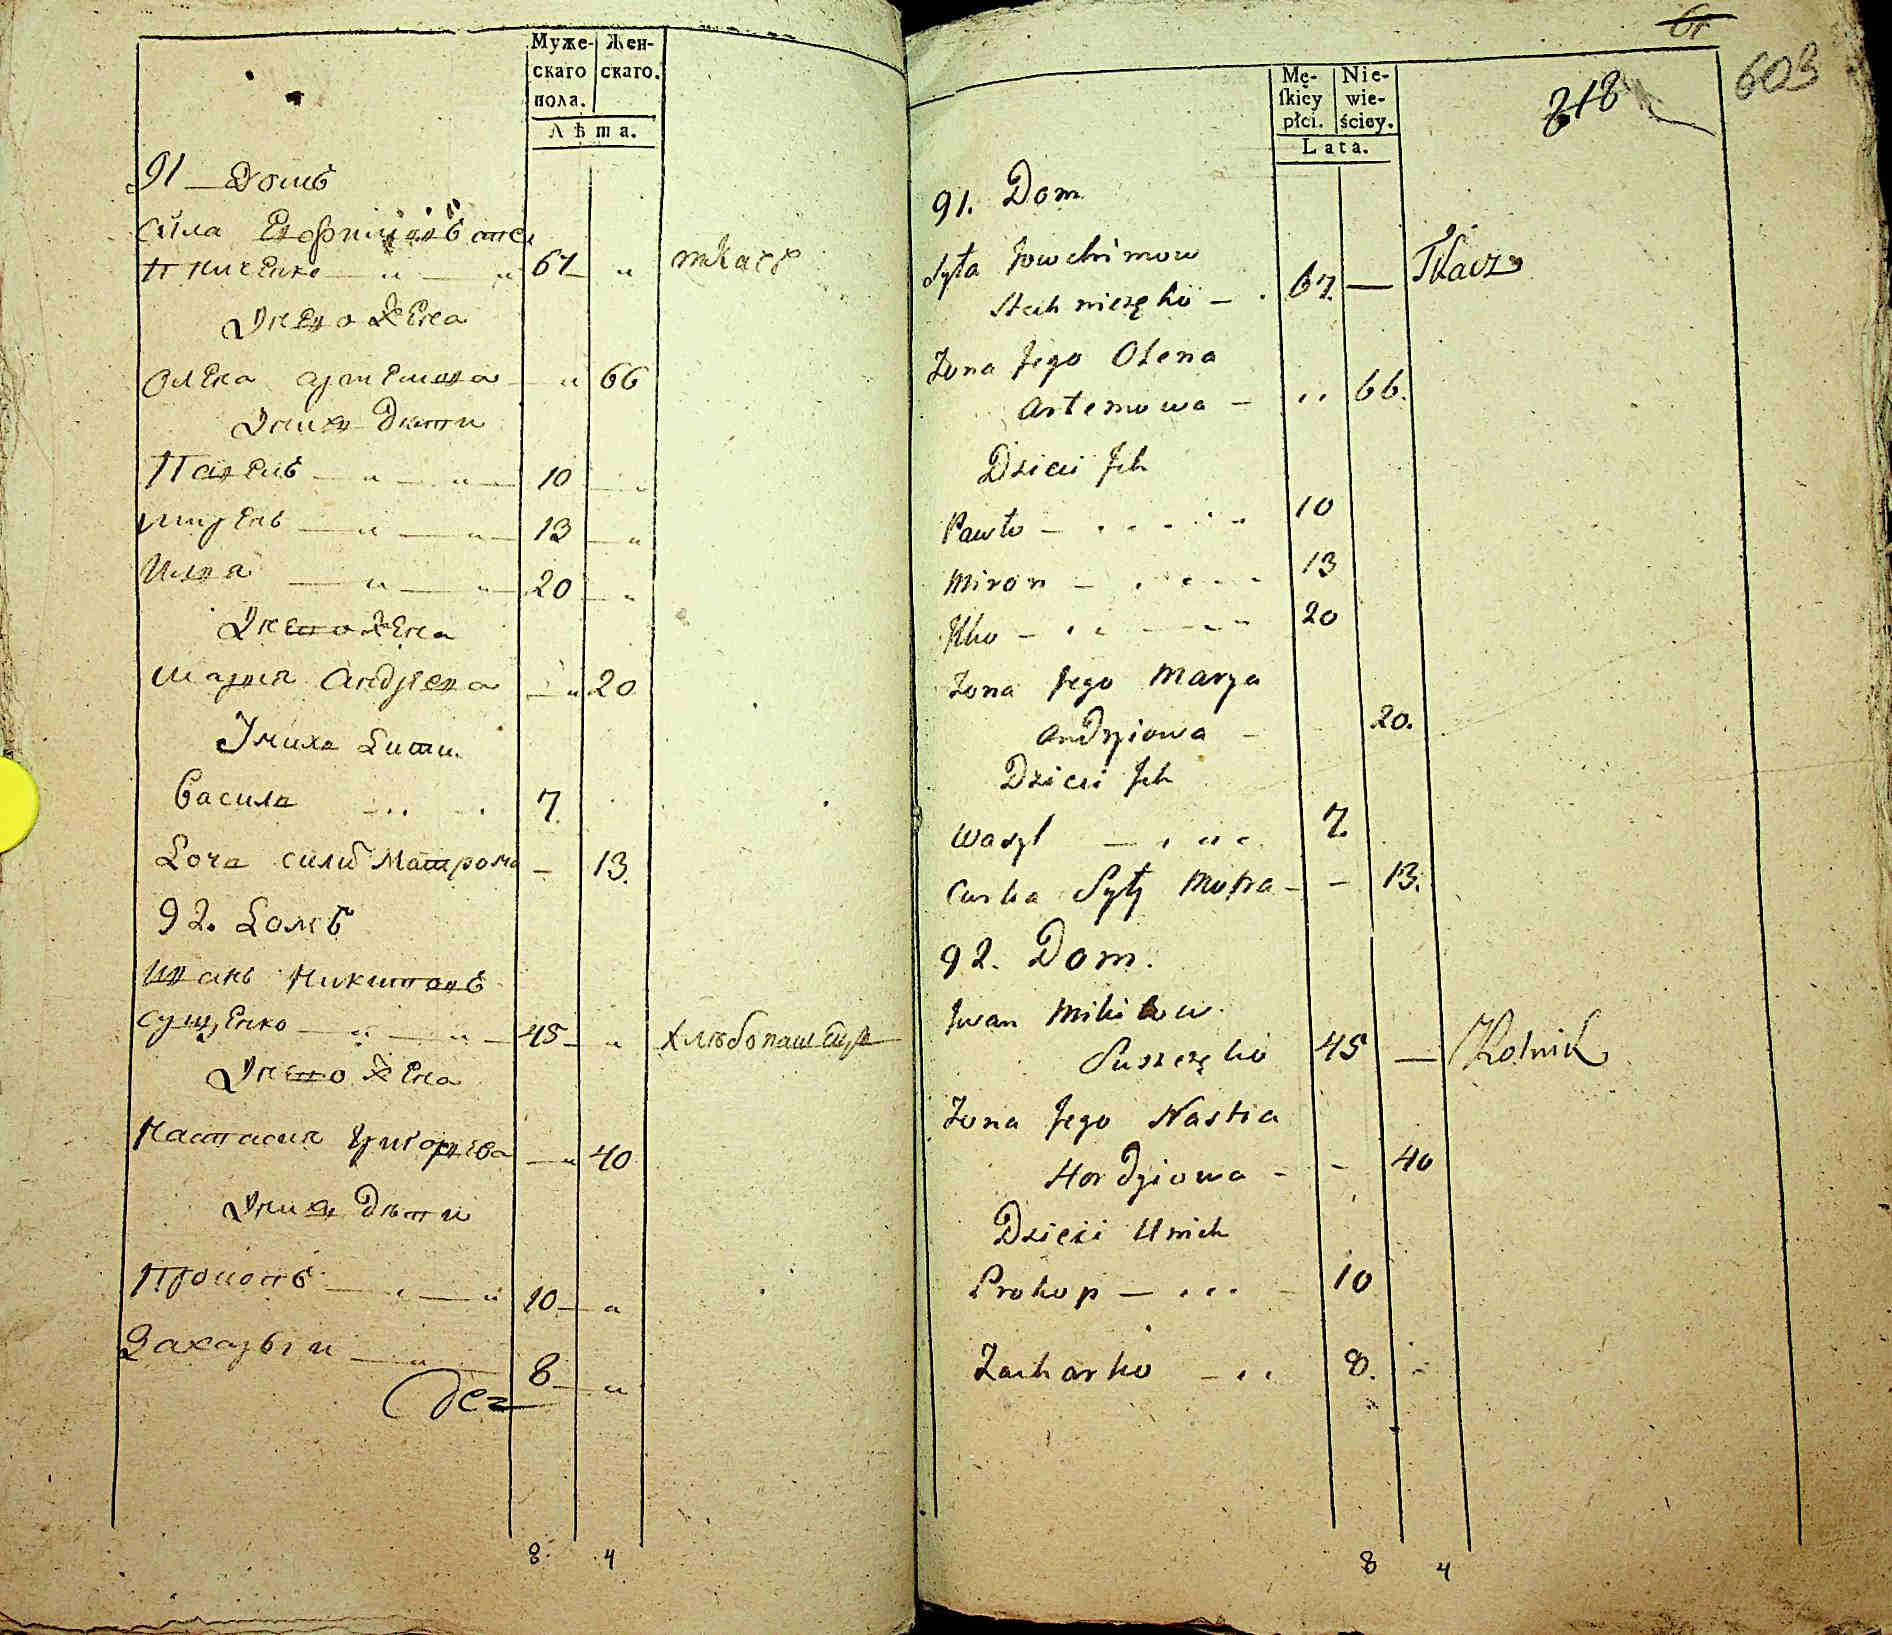 Муже-
скаго
пола.
Жен-
скаго.
Лѣта.
91 Домъ
Сила
67 ткачъ
У нево Жена
Олена Артемова 66
У нихъ Дѣти
Павелъ 10
Миронъ 13
Илья 20
У нево Жена
Мария Андреева 20
У нихъ Дети
Василь 7
Доча Силы Матрона 13.
92. Домъ
Иванъ Никитовъ
Сущенко 45 хлѣбопашецъ
У нево Жена
Настасия Григорьева 40
У нихъ Дѣти
Прокопъ 10
Захарый 8
8. 4
603
218
Mę-
skiey
płci.
Nie-
wie-
ściey.
Lata.
91. Dom
Syła Jowchimow
67. — Tkacz
Żona Jego Olena
Artemowa — 66.
Dzieci Ich
Pawło — 10
Miron — 13
Ilko — 20
Żona Jego Marya
Andryiowa — 20.
Dzieci Ich
Wasyl — 7.
Curka Syły Motra — 13.
92. Dom.
Iwan Mikitow
Suszczęko 45 — Rolnik
Żona Jego Nastia
Hordyiowa — 40
Dzieci Unich
Prokop — 10
Zacharko — 8.
8 4